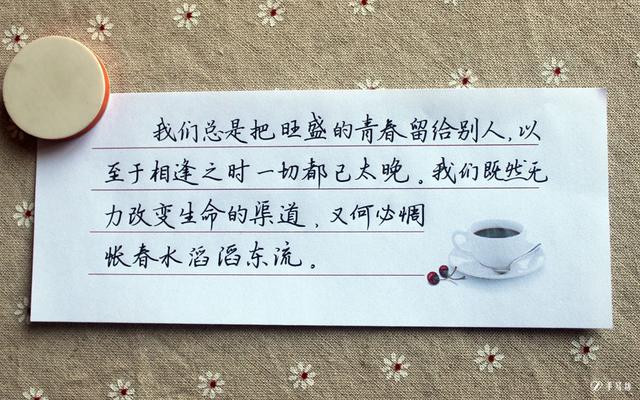 我们总是把旺盛的青春留给别人，以
至于相逢之时一切都已太晚。我们既然无
力改变生命的渠道、又何必惆
怅春水滔滔东流。